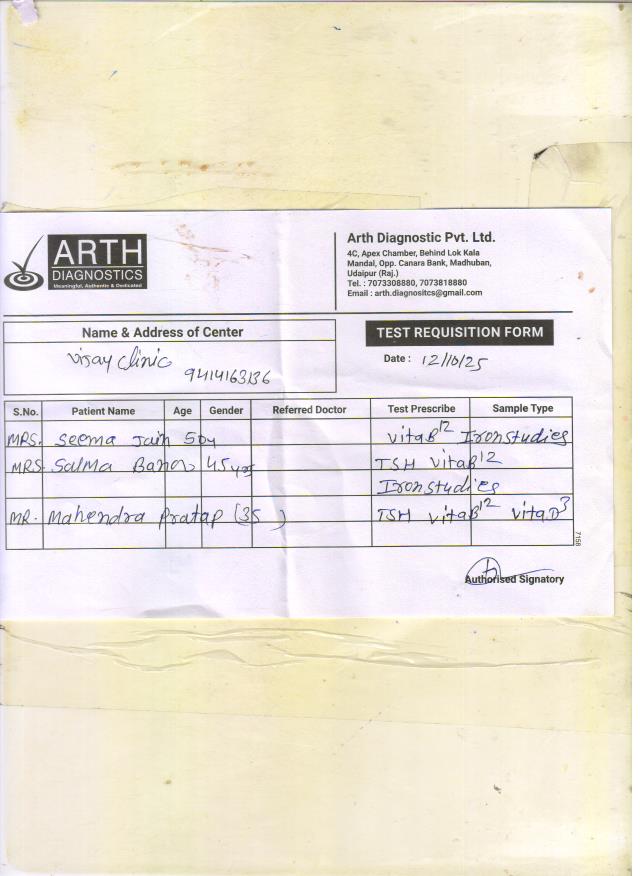 ARTH
DIAGNOSTICS
Meaningful, Authentic & Dedicated
Arth Diagnostic Pvt. Ltd.
4C, Apex Chamber, Behind Lok Kala
Mandal, Opp. Canara Bank, Madhuban,
Udaipur (Raj.)
Tel. : 7073308880, 7073818880
Email : arth.diagnositcs@gmail.com
Name & Address of Center
Vijay clinic
9414163136
TEST REQUISITION FORM
Date : 12/10/25
S.No. Patient Name Age Gender Referred Doctor Test Prescribe Sample Type
MRS. Seema Jain 50y VitaB12 Iron studies
MRS. Salma Bano 45 yrs TSH VitaB12
Iron studies
MR. Mahendra Pratap (35 ) TSH VitaB12 VitaD3
7158
Authorised Signatory